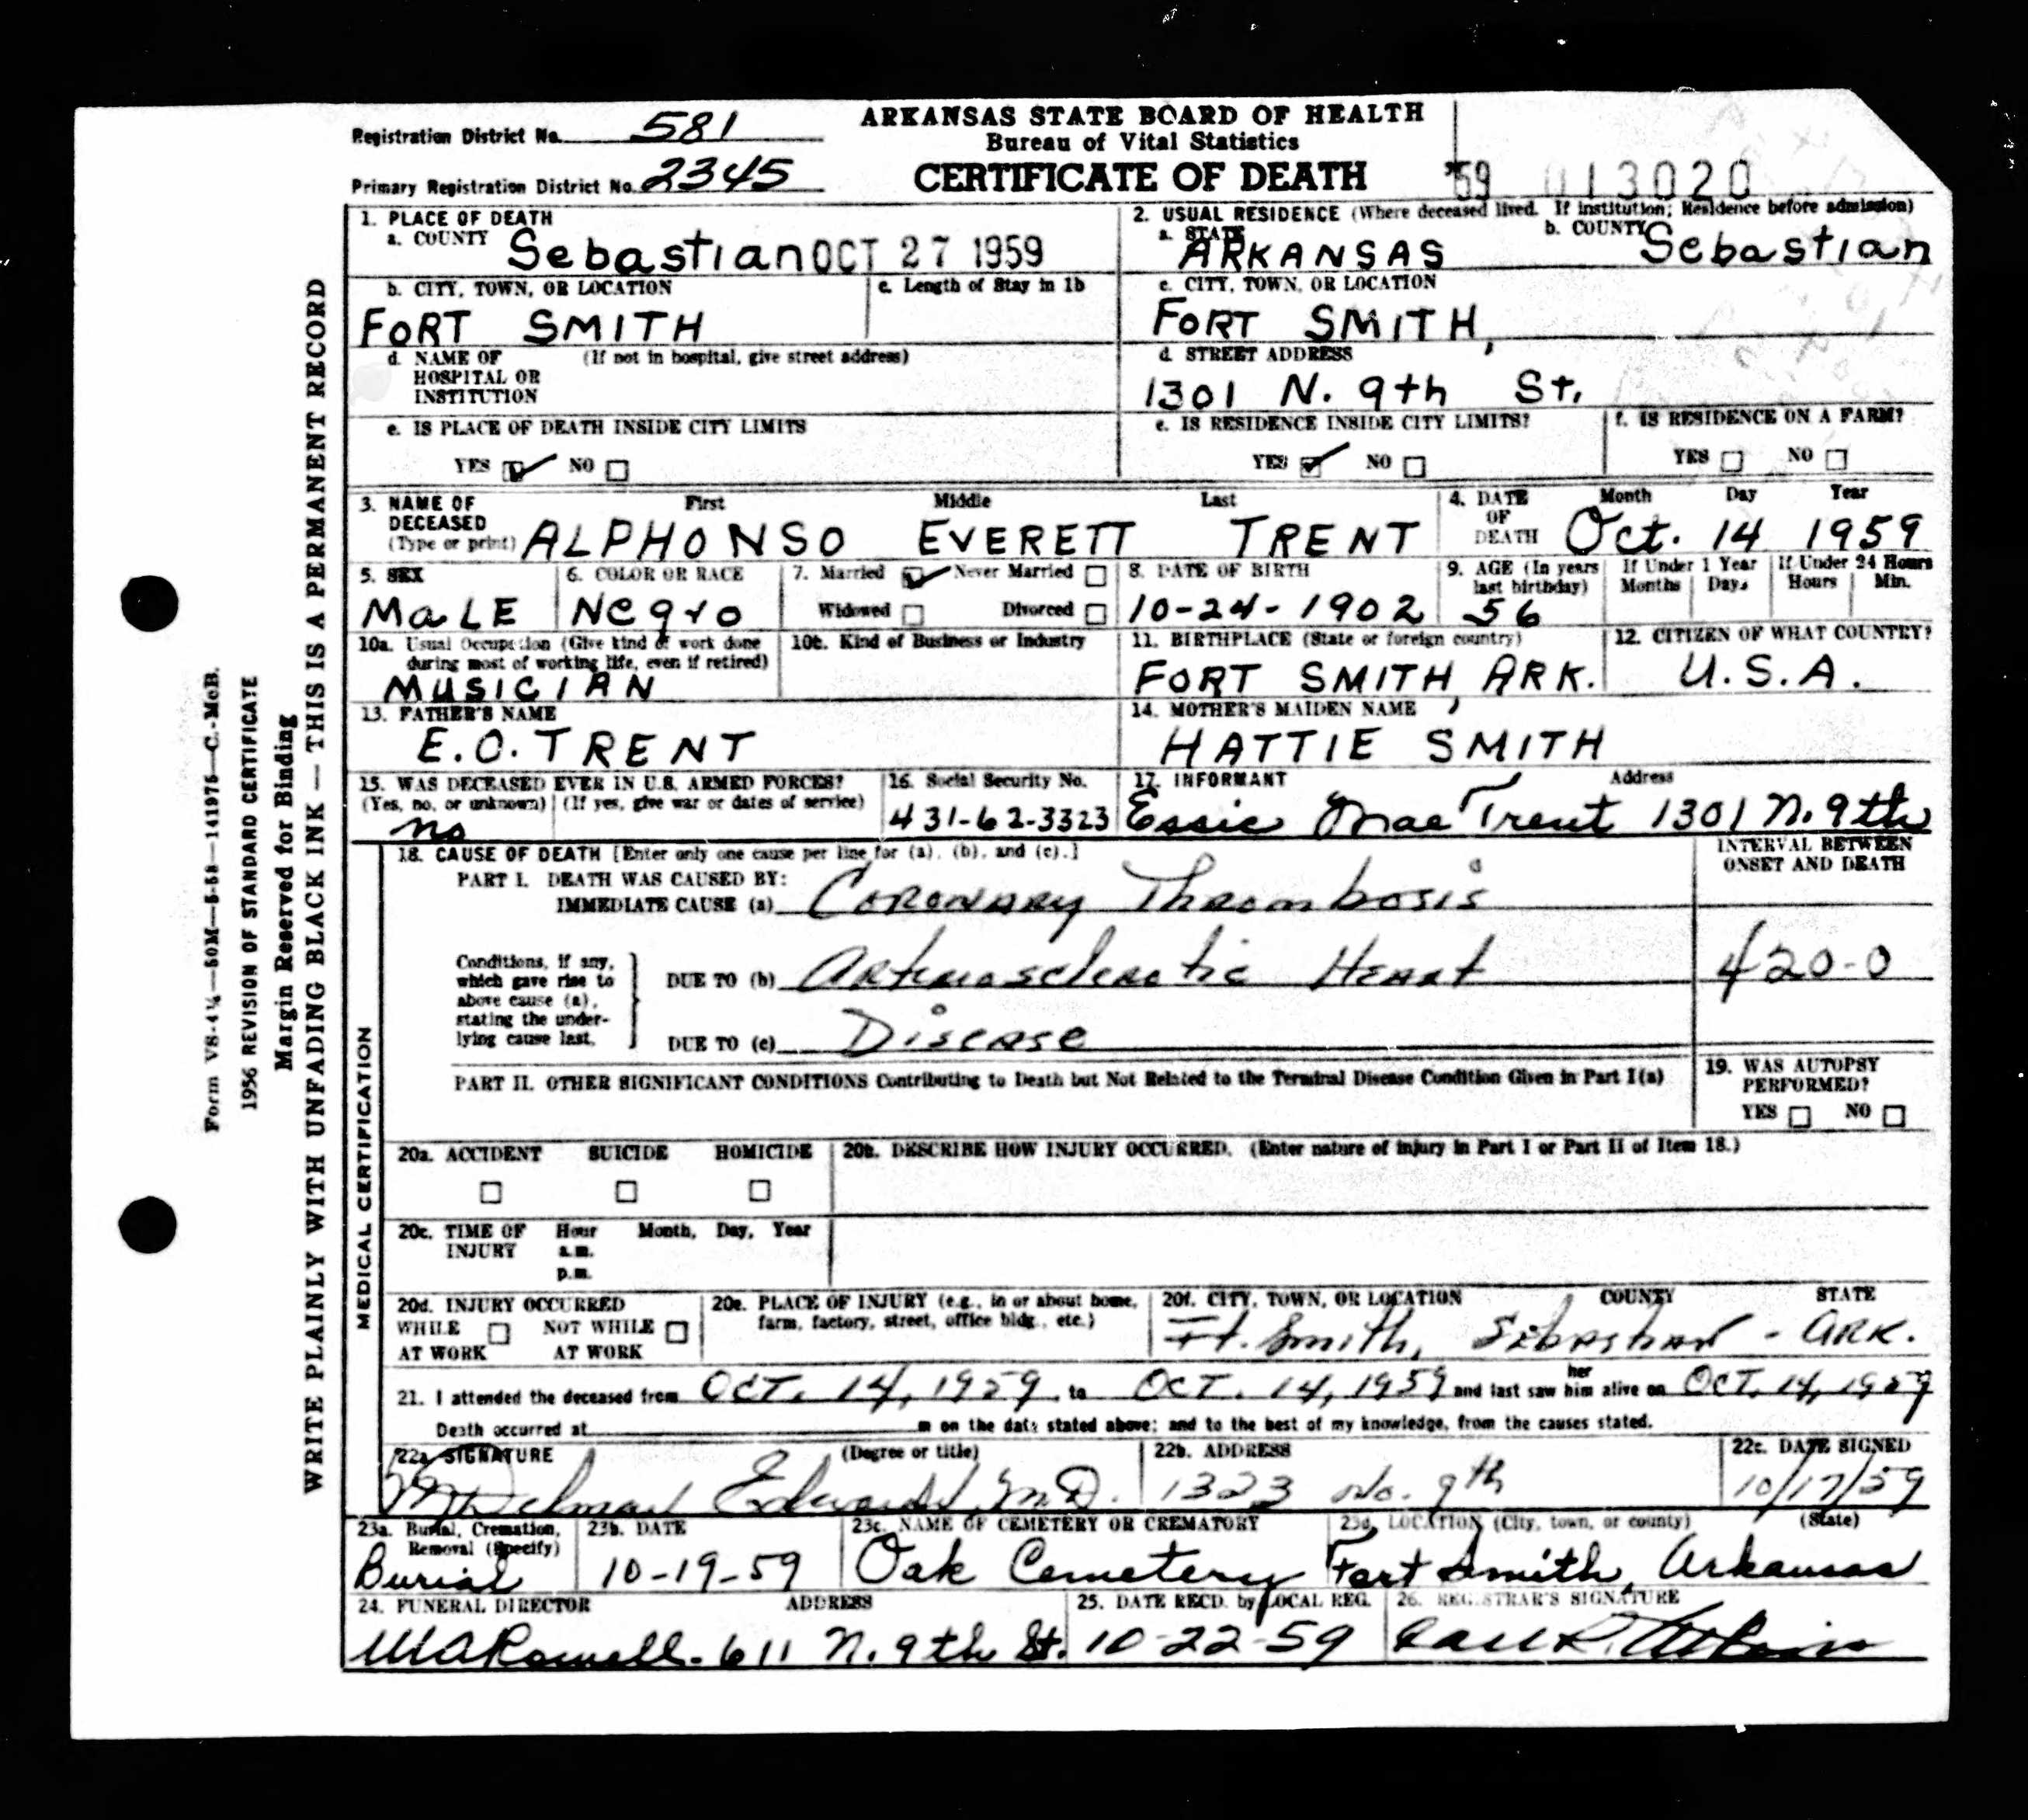 ARKANSAS STATE BOARD OF HEALTH
Bureau of Vital Statistics
CERTIFICATE OF DEATH
Registration District No. 581
Primary Registration District No. 2345
'59 013020
1. PLACE OF DEATH
a. COUNTY Sebastian OCT 27 1959
b. CITY, TOWN, OR LOCATION
FORT SMITH
c. Length of Stay in 1b
d. NAME OF HOSPITAL OR INSTITUTION (If not in hospital, give street address)
e. IS PLACE OF DEATH INSIDE CITY LIMITS
YES ✓ NO
2. USUAL RESIDENCE (Where deceased lived. If institution; Residence before admission)
a. STATE ARKANSAS
b. COUNTY Sebastian
c. CITY, TOWN, OR LOCATION
FORT SMITH,
d. STREET ADDRESS
1301 N. 9th St.
e. IS RESIDENCE INSIDE CITY LIMITS?
YES ✓ NO
f. IS RESIDENCE ON A FARM?
YES NO
3. NAME OF DECEASED (Type or print)
First Middle Last
ALPHONSO EVERETT TRENT
4. DATE OF DEATH
Month Day Year
Oct. 14 1959
5. SEX
MaLE
6. COLOR OR RACE
Negro
7. Married ✓ Never Married
Widowed Divorced
8. DATE OF BIRTH
10-24-1902
9. AGE (In years last birthday)
56
If Under 1 Year
Months Days
If Under 24 Hours
Hours Min.
10a. Usual Occupation (Give kind of work done during most of working life, even if retired)
MUSICIAN
10b. Kind of Business or Industry
11. BIRTHPLACE (State or foreign country)
FORT SMITH, ARK.
12. CITIZEN OF WHAT COUNTRY?
U.S.A.
13. FATHER'S NAME
E.O. TRENT
14. MOTHER'S MAIDEN NAME
HATTIE SMITH
15. WAS DECEASED EVER IN U.S. ARMED FORCES?
(Yes, no, or unknown) (If yes, give war or dates of service)
no
16. Social Security No.
431-62-3323
17. INFORMANT Address
Essie Mae Trent 1301 N. 9th
MEDICAL CERTIFICATION
18. CAUSE OF DEATH [Enter only one cause per line for (a), (b), and (c).]
INTERVAL BETWEEN ONSET AND DEATH
PART I. DEATH WAS CAUSED BY:
IMMEDIATE CAUSE (a) Coronary Thrombosis
Conditions, if any, which gave rise to above cause (a), stating the underlying cause last.
DUE TO (b) Arteriosclerotic Heart
420-0
DUE TO (c) Disease
PART II. OTHER SIGNIFICANT CONDITIONS Contributing to Death but Not Related to the Terminal Disease Condition Given in Part I(a)
19. WAS AUTOPSY PERFORMED?
YES NO
20a. ACCIDENT SUICIDE HOMICIDE
20b. DESCRIBE HOW INJURY OCCURRED. (Enter nature of injury in Part I or Part II of Item 18.)
20c. TIME OF INJURY
Hour Month, Day, Year
a.m.
p.m.
20d. INJURY OCCURRED
WHILE AT WORK NOT WHILE AT WORK
20e. PLACE OF INJURY (e.g., in or about home, farm, factory, street, office bldg., etc.)
20f. CITY, TOWN, OR LOCATION COUNTY STATE
Ft. Smith, Sebastian - ARK.
21. I attended the deceased from OCT. 14, 1959 to OCT. 14, 1959 and last saw her him alive on OCT. 14, 1959
Death occurred at m on the date stated above; and to the best of my knowledge, from the causes stated.
22a. SIGNATURE (Degree or title)
Edwards M.D.
22b. ADDRESS
1323 No. 9th
22c. DATE SIGNED
10/17/59
23a. Burial, Cremation, Removal (Specify)
Burial
23b. DATE
10-19-59
23c. NAME OF CEMETERY OR CREMATORY
Oak Cemetery
23d. LOCATION (City, town, or county) (State)
Fort Smith, Arkansas
24. FUNERAL DIRECTOR ADDRESS
611 N. 9th St.
25. DATE RECD. by LOCAL REG.
10-22-59
26. REGISTRAR'S SIGNATURE
Form VS-4¼—50M—5-58—141975—C.-McB.
1956 REVISION OF STANDARD CERTIFICATE
Margin Reserved for Binding
WRITE PLAINLY WITH UNFADING BLACK INK — THIS IS A PERMANENT RECORD